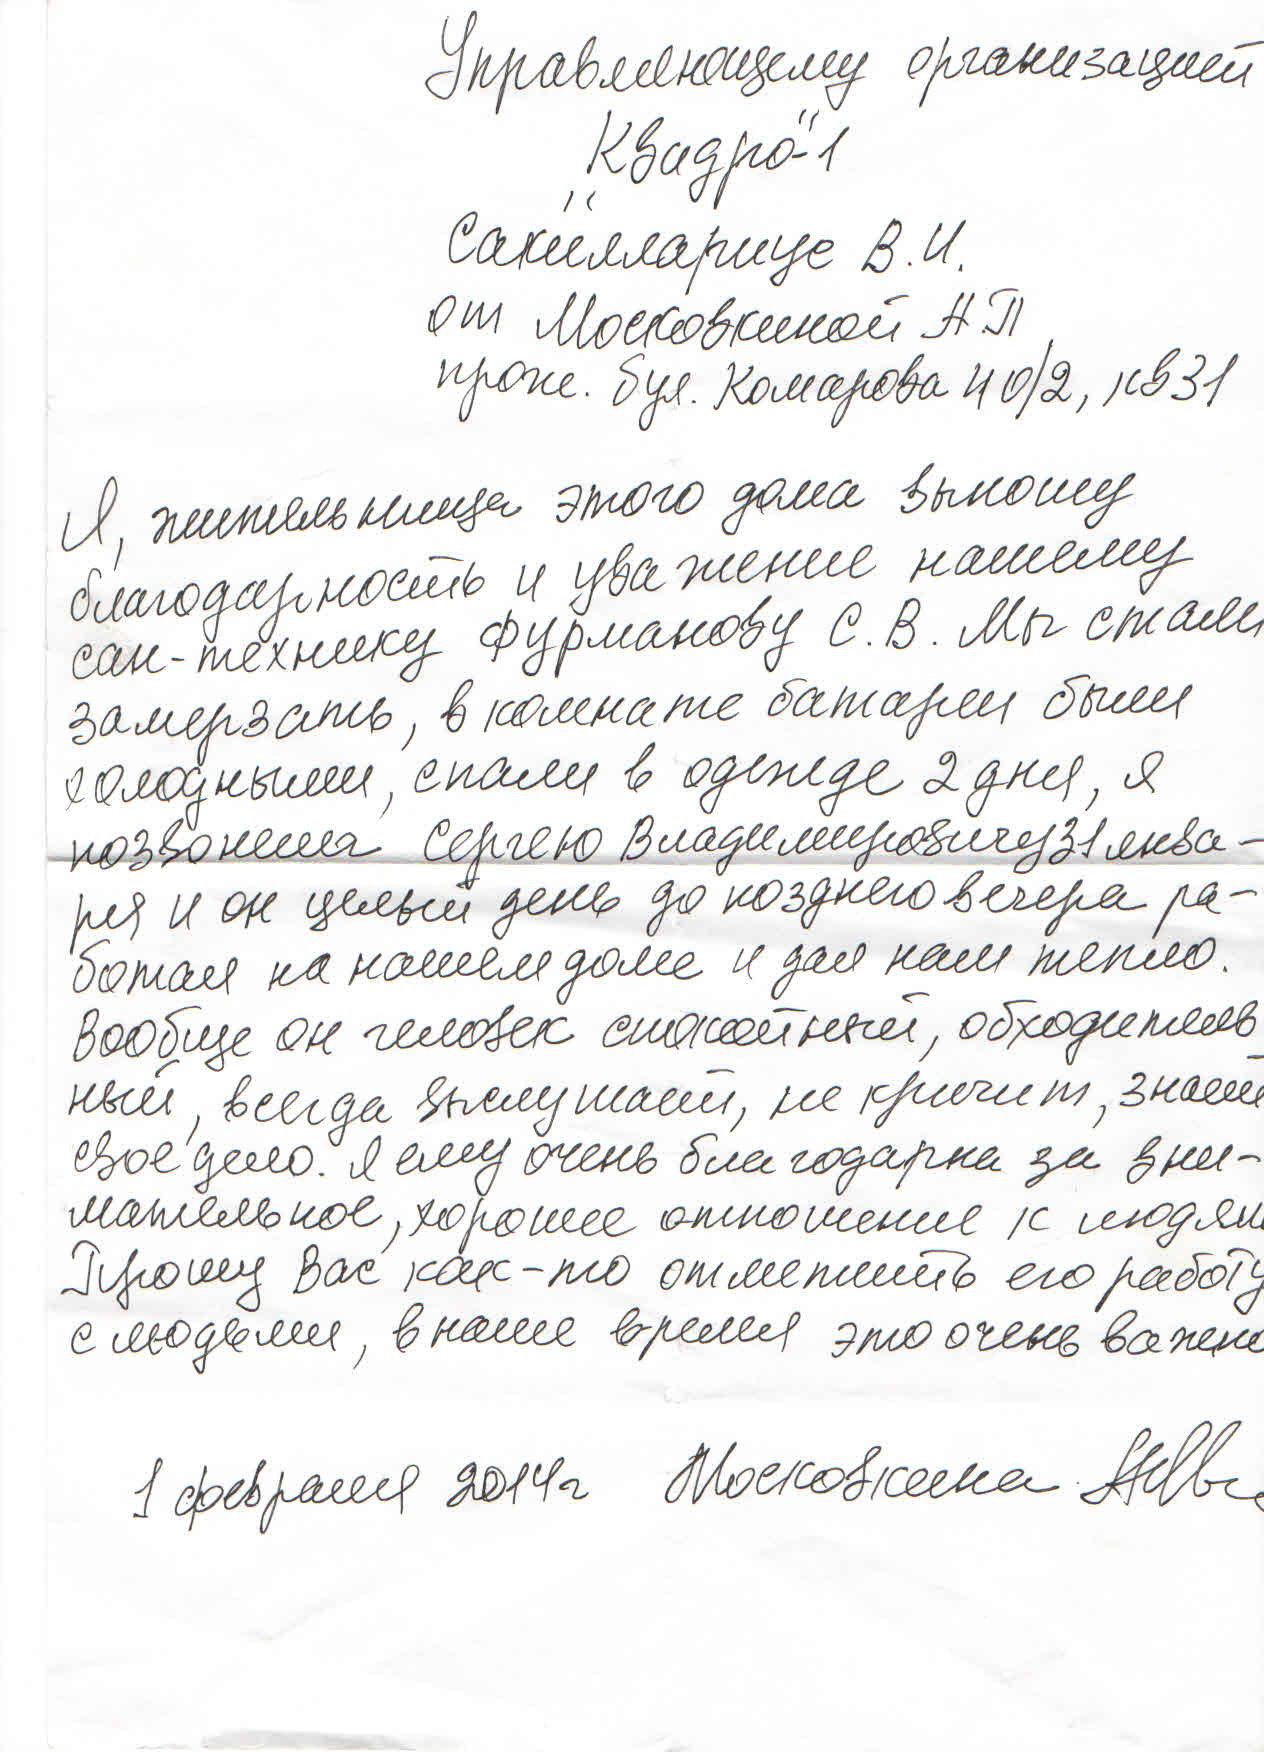 Управляющему организацией
"Квадро-1"
Сакеллариус В.И.
от Московкиной А.П
прож. бул. Комарова 11 0/2, кв 31
Я, жительница этого дома выношу
благодарность и уважение нашему
сан-технику Фурманову С.В. Мы стали
замерзать, в комнате батареи были
холодными, спали в одежде 2 дня, я
позвонила Сергею Владимировичу 31 янва-
ря и он целый день до позднего вечера ра-
ботал на нашем доме и дал нам тепло.
Вообще он человек спокойный, обходитель
ный, всегда выслушает, не кричит, знает
свое дело. Я ему очень благодарна за вни-
мательное, хорошее отношение к людям
Прошу Вас как-то отметить его работу
с людьми, в наше время это очень важно
1 февраля 2014г Московкина